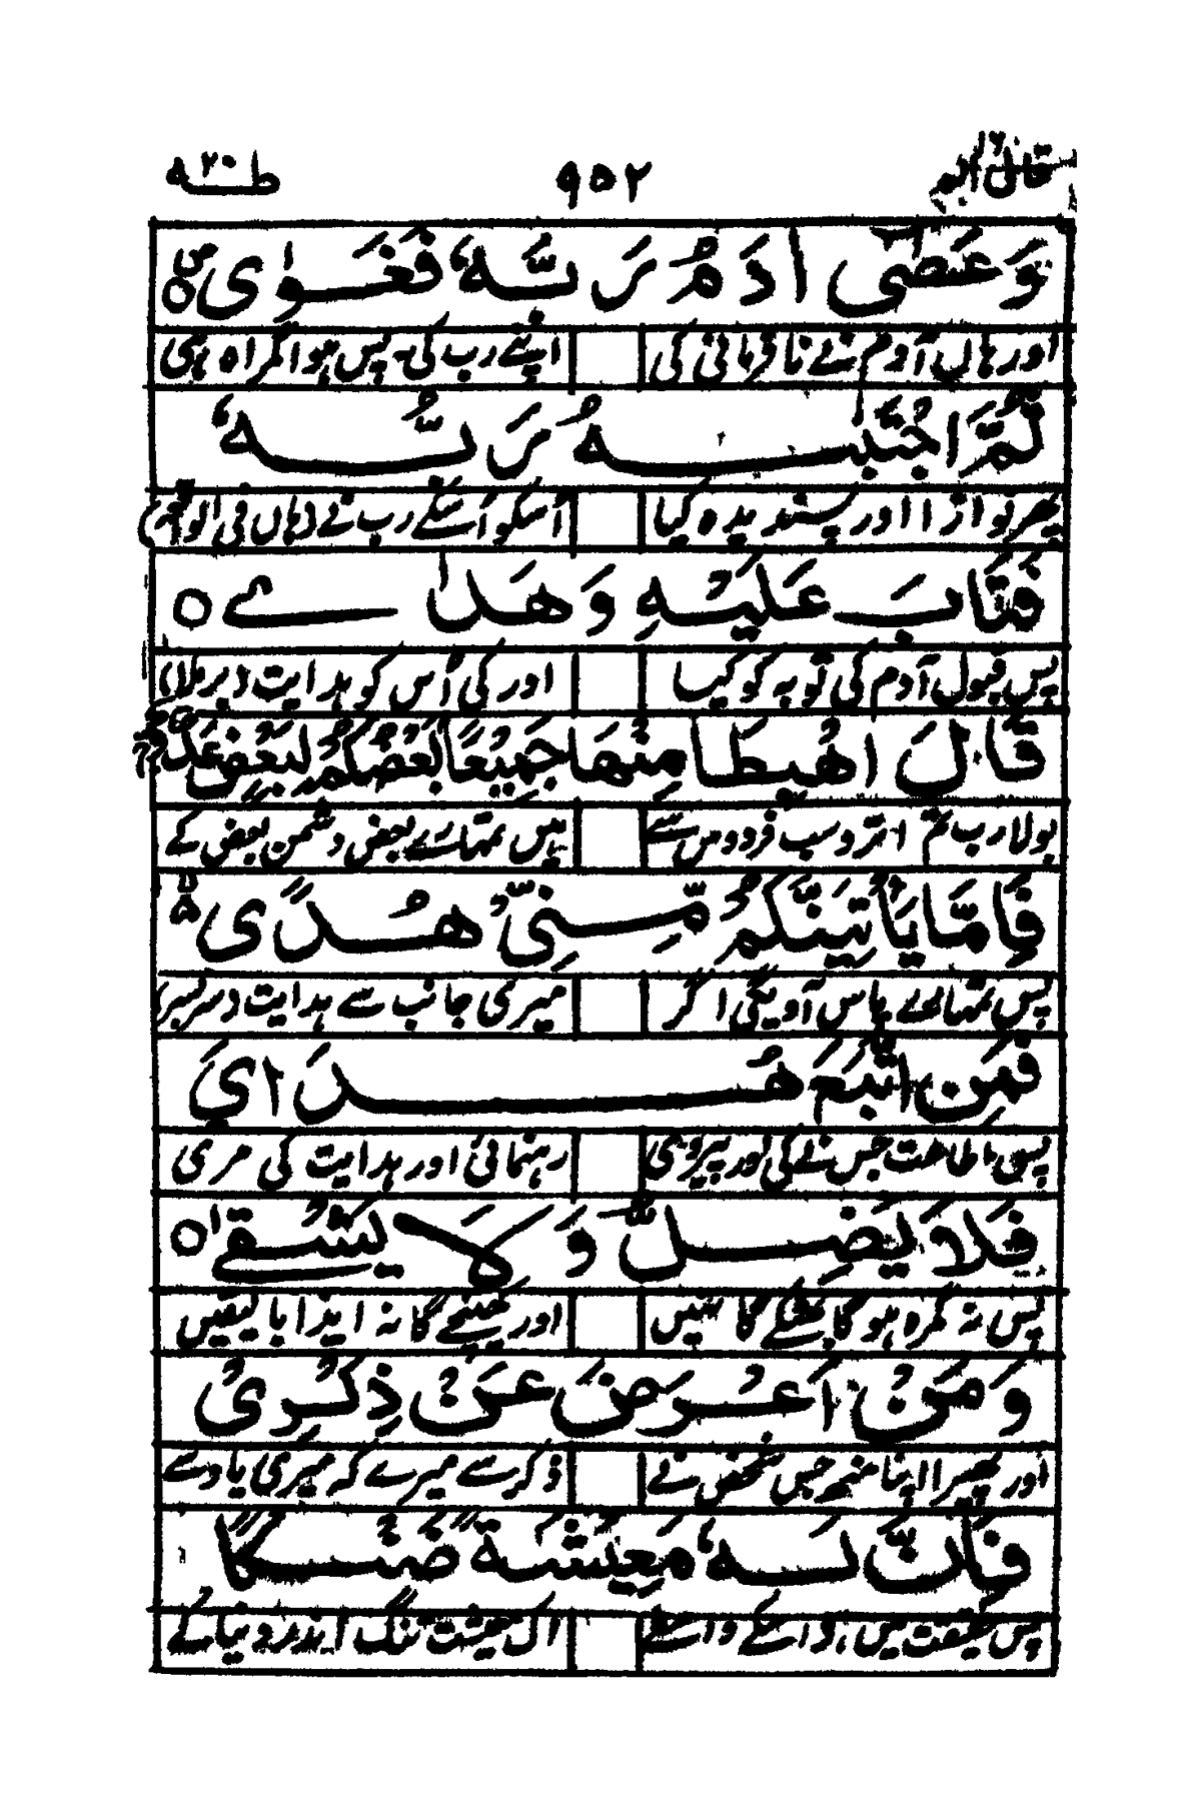 قال الم ۱۶ ۹۵۲ طٰهٰ ۲۰
وَعَصٰٓى اٰدَمُ رَبَّهٗ فَغَوٰى ۝
اور ہاں آدم نے نافرمانی کی اپنے رب کی۔ پس ہوا گمراہ ہی
ثُمَّ اجْتَبٰىهُ رَبُّهٗ
پھر نوازا اور پسندیدہ کیا اُسکو اُسکے رب نے وہاں
فَتَابَ عَلَيْهِ وَهَدٰے ۝
پس قبول آدم کی توبہ کو کیا اور کی اُس کو ہدایت برملا
قَالَ اهْبِطَا مِنْهَا جَمِيْعًا بَعْضُكُمْ لِبَعْضٍ عَدُوٌّ
بولا رب تم اترو سب فردوس سے ہیں تمہارے بعض دشمن بعض کے
فَاِمَّا يَاْتِيَنَّكُمْ مِّنِّىْ هُدًى
پس تمہارے پاس آویگی اگر میری جانب سے ہدایت سربسر
فَمَنِ اتَّبَعَ هُدَاىَ
پس اطاعت جس نے کی اور پیروی رہنمائی اور ہدایت کی مری
فَلَا يَضِلُّ وَلَا يَشْقٰى ۝
پس نہ گمرہ ہوگا بھٹکے گا نہیں اور کھینچے گا نہ ایذا بالیقیں
وَمَنْ اَعْرَضَ عَنْ ذِكْرِىْ
اور پھیرا اپنا منہ جس شخص نے ذکر سے میرے کہ میری یاد سے
فَاِنَّ لَهٗ مَعِيْشَةً ضَنْكًا
پس حقیقت میں اُسکے واسطے اک معیشت تنگ اندر دنیا کے